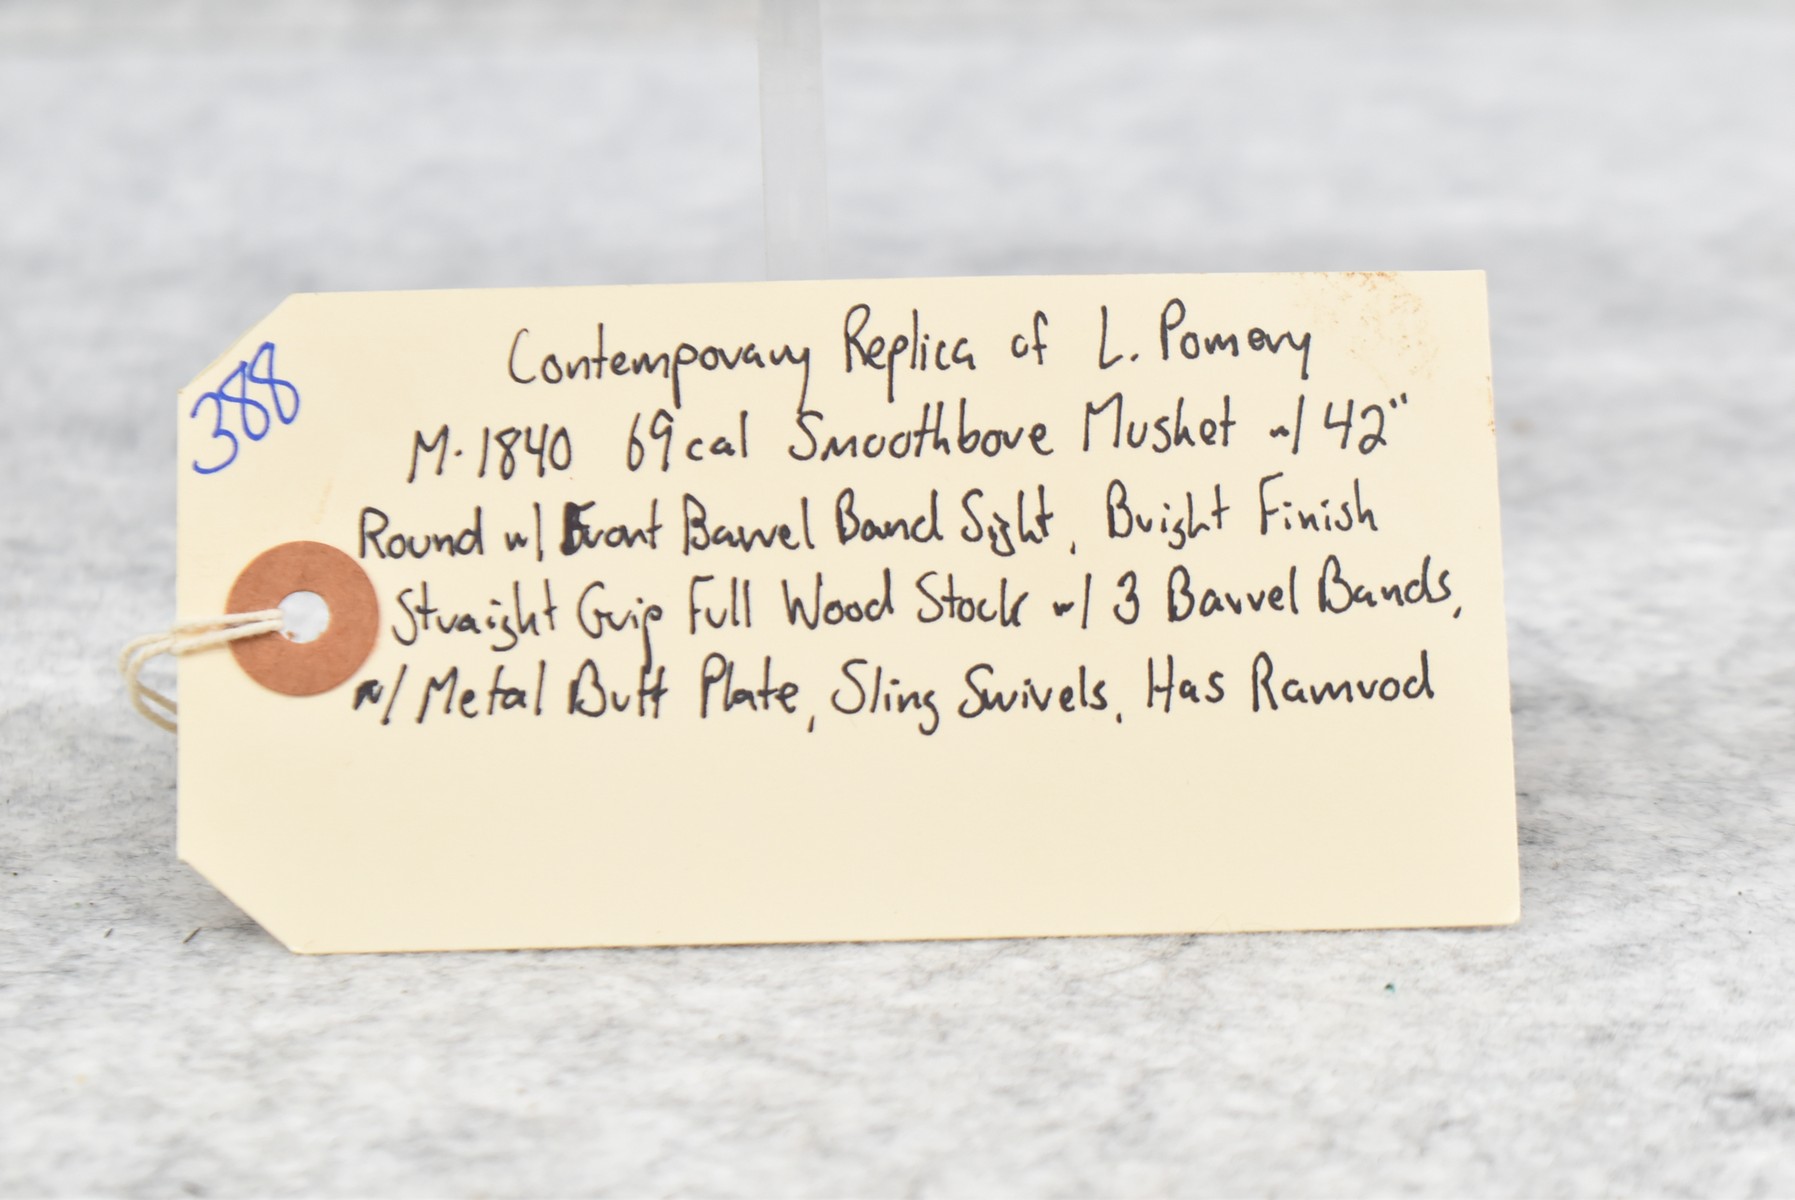 388
Contemporary Replica of L. Pomery
M-1840 69cal Smoothbore Musket w/ 42"
Round w/ Front Barrel Band Sight, Bright Finish
Straight Grip Full Wood Stock w/ 3 Barrel Bands,
w/ Metal Butt Plate, Sling Swivels, Has Ramrod